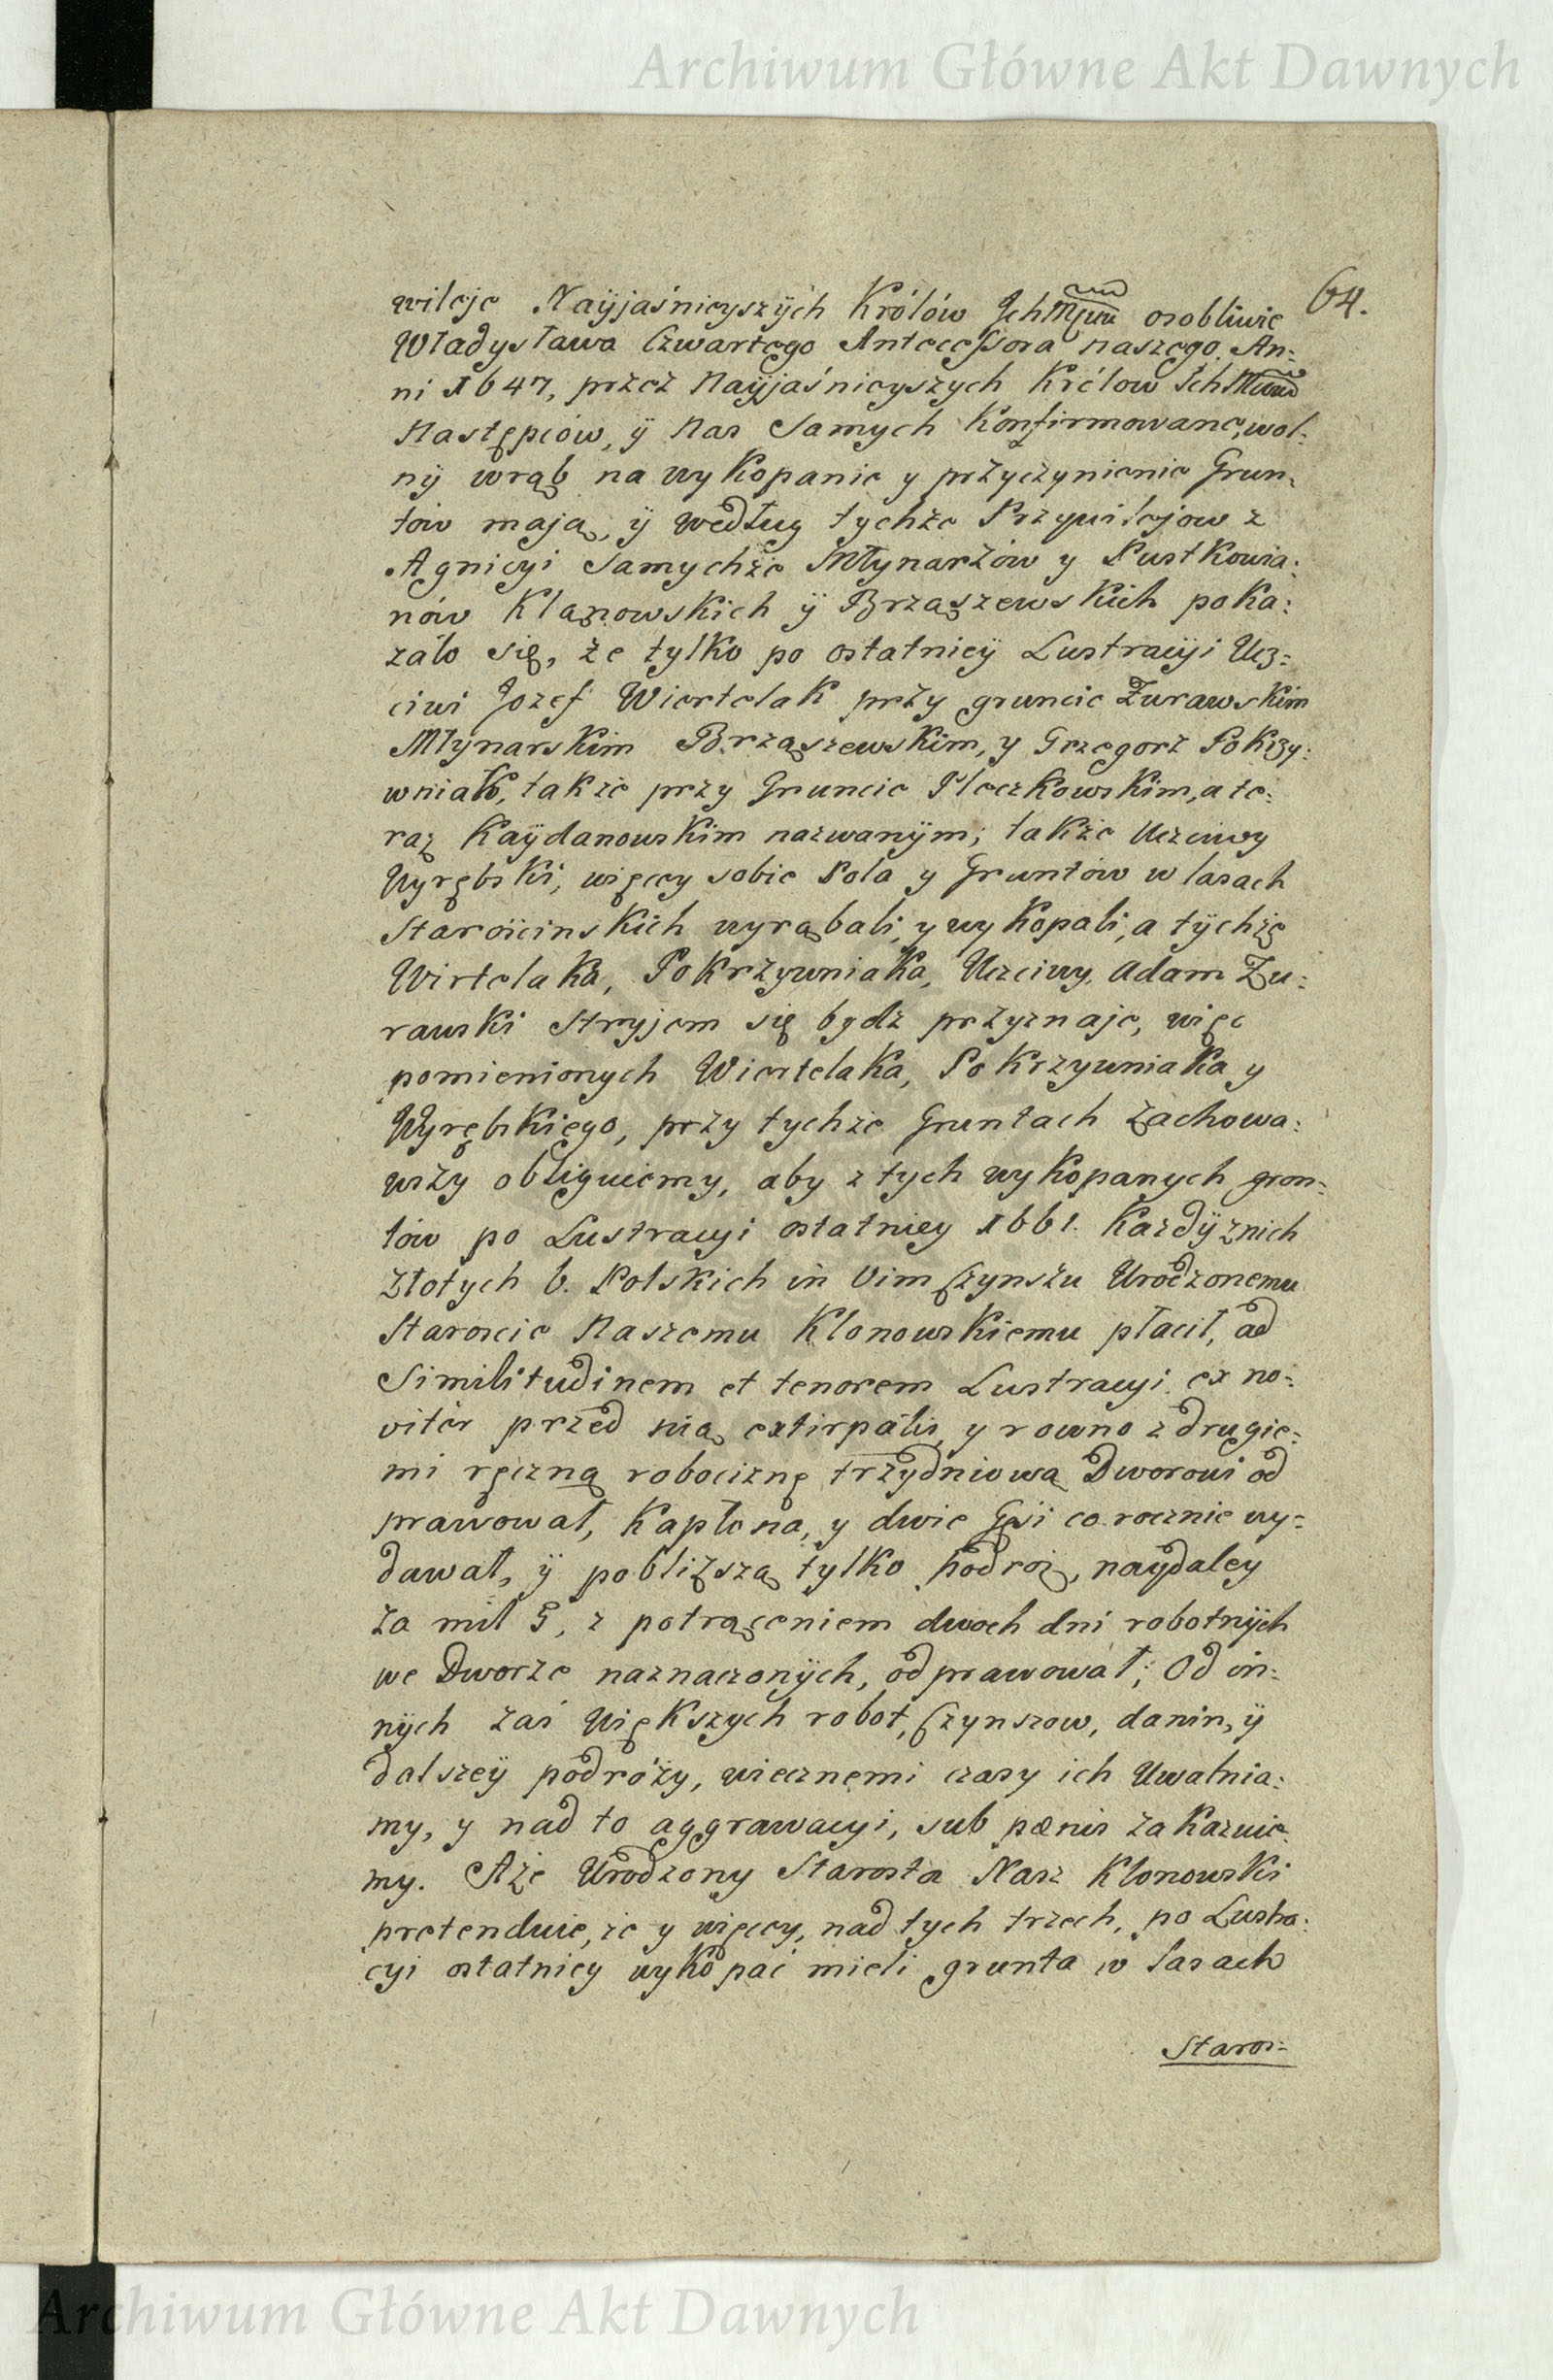 Archiwum Główne Akt Dawnych
64.
wileje Nayjaśnieyszych Królów Jchmców osobliwie
Władysława Czwartego Antecessora naszego An-
ni 1647, przez Nayjaśnieyszych Królow Jchmców
Następców, ÿ Nas Samych Konfirmowane, wol-
nÿ wrąb na wykopanie y przyczynienie Grun-
tów mają, ÿ według tychże Przywilejow z
Agnicyi Samychże Młynarzów y Pustkowia-
nów Klanowskich ÿ Brząszewskich poka-
zało się, że tylko po ostatnieÿ Lustracÿi Ucz-
ciwi Jozef Wiertelak przy gruncie Żurawskim
Młynarskim Brząszewskim, y Grzegorz Pokrzy-
wniak, także przy Gruncie Ploczkowskim, a te-
raz Kaÿdanowskim nazwanÿm; także Uczciwy
Wyrębski, więcey sobie Pola y Gruntów w lasach
Starościnskich wyrąbali, y wykopali, a tÿchże
Wirtelaka, Pokrzywniaka, Uczciwy Adam Żu-
rawski Stryjem się bydz przyznaje, więc
pomienionych Wiertelaka, Pokrzywniaka y
Wyrębskiego, przy tychże Gruntach zachowa-
wszy obliguiemy, aby z tych wykopanych gron-
tów po Lustracyi ostatniey 1661. Kazdÿ z nich
Złotych 6. Polskich in Vim Czynszu Urodzonemu
Staroscie Naszemu Klonowskiemu płacił, ad
Similitudinem et tenorem Lustracyi ex no-
viter przed nią extirpatis, y rowno z drugie-
mi ręczną robociznę trzydniową Dworowi od
prawował, Kapłona, y dwie Gęsi co rocznie wy-
dawał, ÿ pobliższą tylko podroż, naydaley
za mil 5, z potrąceniem dwoch dni robotnÿch
we Dworze naznaczonÿch, odprawował; Od in-
nÿch zaś Większych robot, Czynszow, danin, ÿ
dalszeÿ podróży, wiecznemi czasy ich Uwalnia-
my, y nad to aggrawacyi, sub pœnis zakazuie-
my. Aże Urodzony Starosta Nasz Klonowski
pretenduie, że y więcey, nad tych trzech, po Lustra-
cyi ostatniey wykopać mieli grunta w lasach
Staros-
Archiwum Główne Akt Dawnych